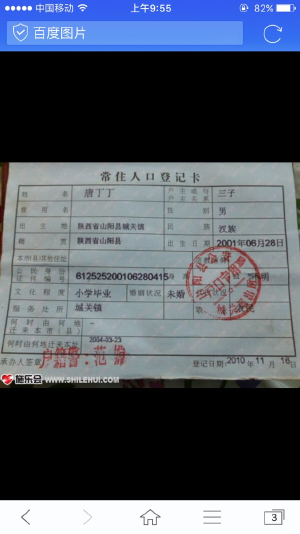 中国移动 上午9:55 82%
百度图片
常住人口登记卡
姓名 唐丁丁 户主或与户主关系 三子
曾用名 性别 男
出生地 陕西省山阳县城关镇 民族 汉族
籍贯 陕西省山阳县 出生日期 2001年06月28日
本市(县)其他住址
公民身份证件编号 612525200106280415
文化程度 小学毕业 婚姻状况 未婚
服务处所 城关镇
何时由何地迁来本市(县) -
何时由何地迁来本址 2004-03-23
承办人签章 户籍警：范 登记日期:2010年11月16日
施乐会 WWW.SHILEHUI.COM
3